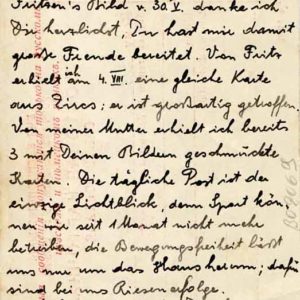 Fritzen's Bild v. 30. V. danke ich
Dir herzlichst, Du hast mir damit
große Freude bereitet. Von Fritz
erhielt ich am 4. VIII eine gleiche Karte
aus ; er ist großartig getroffen.
Von meiner Mutter erhielt ich bereits
3 mit Deinen Bildern geschmückte
Karten. Die tägliche Post ist der
einzige Lichtblick, denn Sport kön-
nen wir seit 1 Monat nicht mehr
betreiben, die Bewegungsfreiheit läßt
uns nur um das Haus herum; dafür
sind bei uns Riesenerfolge.